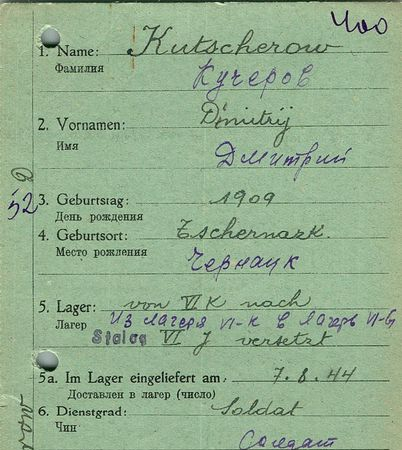 400
1. Name: Kutscherow
Фамилия Кучеров
2. Vornamen: Dmitrij
Имя Дмитрий
52
3. Geburtstag: 1909
День рождения
4. Geburtsort: Tschernazk.
Место рождения Чернацк
5. Lager: von VI K nach
Лагерь Из лагеря VI-К в лагерь VI-G
Stalag VI J versetzt
5a. Im Lager eingeliefert am: 7.8.44
Доставлен в лагер (число)
6. Dienstgrad: Soldat
Чин Солдат